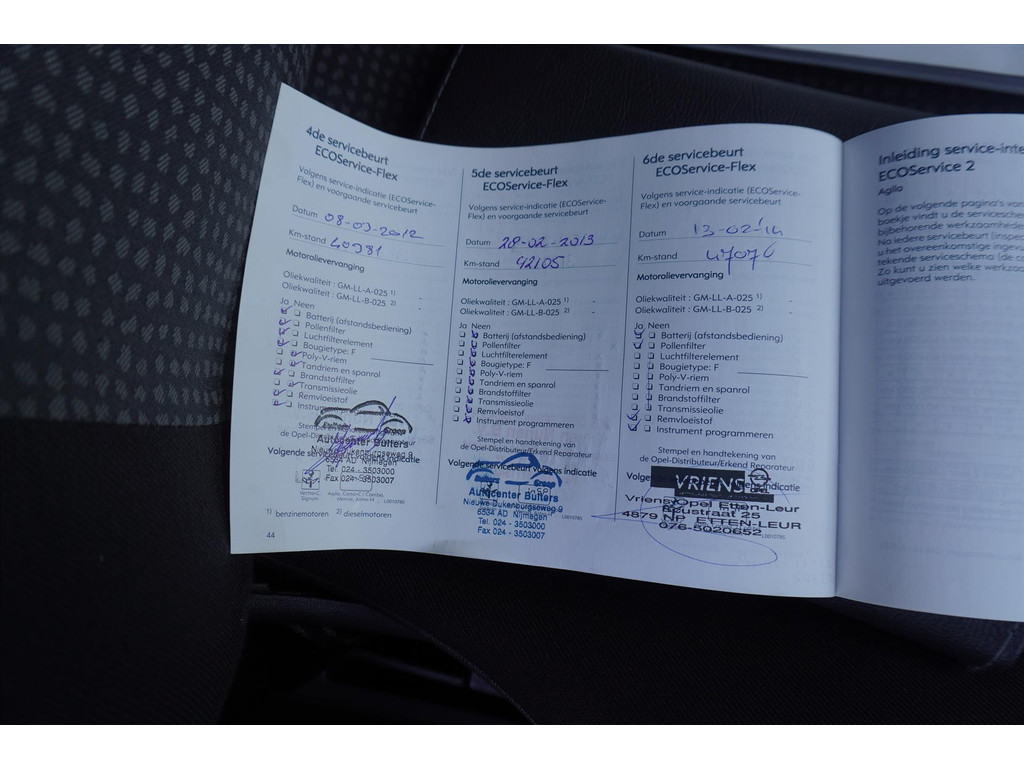 4de servicebeurt
ECOService-Flex
Volgens service-indicatie (ECOService-
Flex) en voorgaande servicebeurt
Datum 08-03-2012
Km-stand 40981
Motorolievervanging
Oliekwaliteit : GM-LL-A-025 1) -
: GM-LL-B-025 2) -
Ja Neen
Batterij (afstandsbediening)
Pollenfilter
Luchtfilterelement
Bougietype: F
Poly-V-riem
Tandriem en spanrol
Brandstoffilter
Transmissieolie
Remvloeistof
Instrum
Stempel en
de Opel-Distributeur
Volgende
Autocenter Bulters
6534 AD Nijmegen
Tel. 024 - 3503000
Fax 024 - 3503007
Vectra-C,
Signum
L0010785
1) benzinemotoren 2) dieselmotoren
44
5de servicebeurt
ECOService-Flex
Volgens service-indicatie (ECOService-
Flex) en voorgaande servicebeurt
Datum 28-02-2013
Km-stand 42105
Motorolievervanging
Oliekwaliteit : GM-LL-A-025 1) -
: GM-LL-B-025 2) -
Ja Neen
Batterij (afstandsbediening)
Pollenfilter
Luchtfilterelement
Bougietype: F
Poly-V-riem
Tandriem en spanrol
Brandstoffilter
Transmissieolie
Remvloeistof
Instrument programmeren
Stempel en handtekening van
de Opel-Distributeur/Erkend Reparateur
Volgende servicebeurt volgens indicatie
Bulters Groep
Autocenter Bulters
Nieuwe Dukenburgseweg 9
6534 AD Nijmegen
Tel. 024 - 3503000
Fax 024 - 3503007
L0010785
6de servicebeurt
ECOService-Flex
Volgens service-indicatie (ECOService-
Flex) en voorgaande servicebeurt
Datum 13-02-'14
Km-stand 47076
Motorolievervanging
Oliekwaliteit : GM-LL-A-025 1) -
: GM-LL-B-025 2) -
Ja Neen
Batterij (afstandsbediening)
Pollenfilter
Luchtfilterelement
Bougietype: F
Poly-V-riem
Tandriem en spanrol
Brandstoffilter
Transmissieolie
Remvloeistof
Instrument programmeren
Stempel en handtekening van
de Opel-Distributeur/Erkend Reparateur
VRIENS
Vriens Opel Etten-Leur
25
4879 NP ETTEN-LEUR
076-5020652
L0010785
Inleiding service-inte
ECOService 2
Agila
Op de volgende pagina's van
boekje vindt u de servicesche
bijbehorende werkzaamheden
Na iedere servicebeurt (inspe
u het overeenkomstige ingevu
tekende serviceschema (de co
Zo kunt u zien welke werkzaa
uitgevoerd werden.